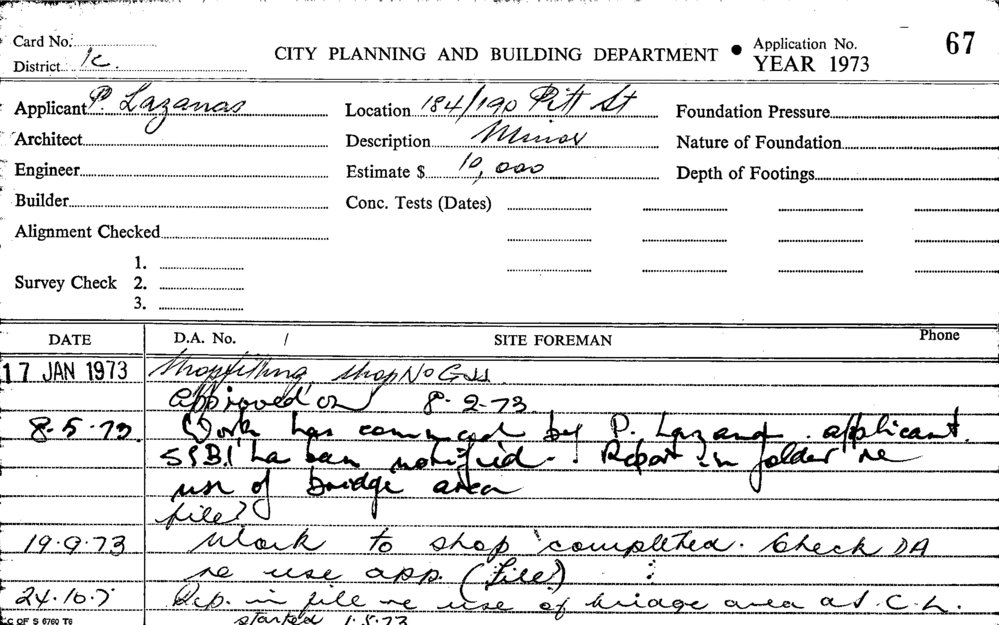 Card No.
District 1c.
CITY PLANNING AND BUILDING DEPARTMENT • Application No. 67
YEAR 1973
Applicant P. Lazanas
Location 184/190 Pitt St
Foundation Pressure
Architect
Description Minor
Nature of Foundation
Engineer
Estimate $ 10,000
Depth of Footings
Builder
Conc. Tests (Dates)
Alignment Checked
Survey Check 1.
2.
3.
DATE D.A. No. / SITE FOREMAN Phone
17 JAN 1973 Shopfitting shop No
Approved on 8-2-73.
8-5-73 Work has commced by P. Lazanas applicant.
been notified. Report in folder re
use of bridge area
file?
19.9.73 Work to shop completed. Check DA
re use app. (File)
24.10.7 Rep. in file re use of bridge area as C.L.
started 1.5.73
C OF S 6760 T6